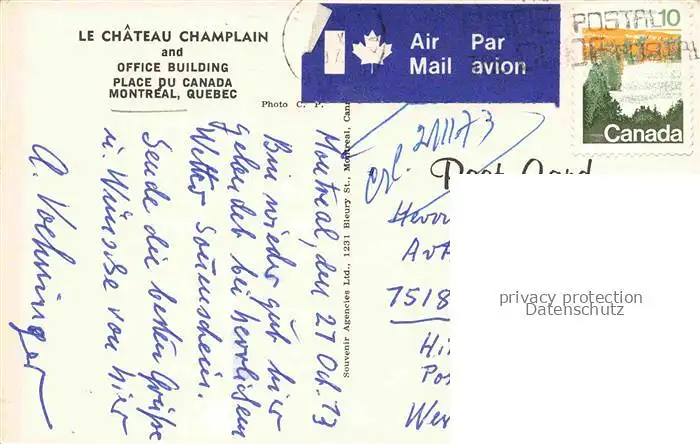 LE CHÂTEAU CHAMPLAIN
and
OFFICE BUILDING
PLACE DU CANADA
MONTRÉAL, QUEBEC
Photo C. P.
Air Mail
Par avion
POSTAL
10
Canada
Post Card
Souvenir Agencies Ltd., 1231 Bleury St., Montreal, Can
Montreal, den 27 Oct. 73
Bin wieder gut hier
gelandet bei herrlichem
Wetter Sonnenschein.
Sende die besten Grüße
u. Wünsche von hier
A. Vochninger
erl. 21173
Herr
7518
privacy protection
Datenschutz